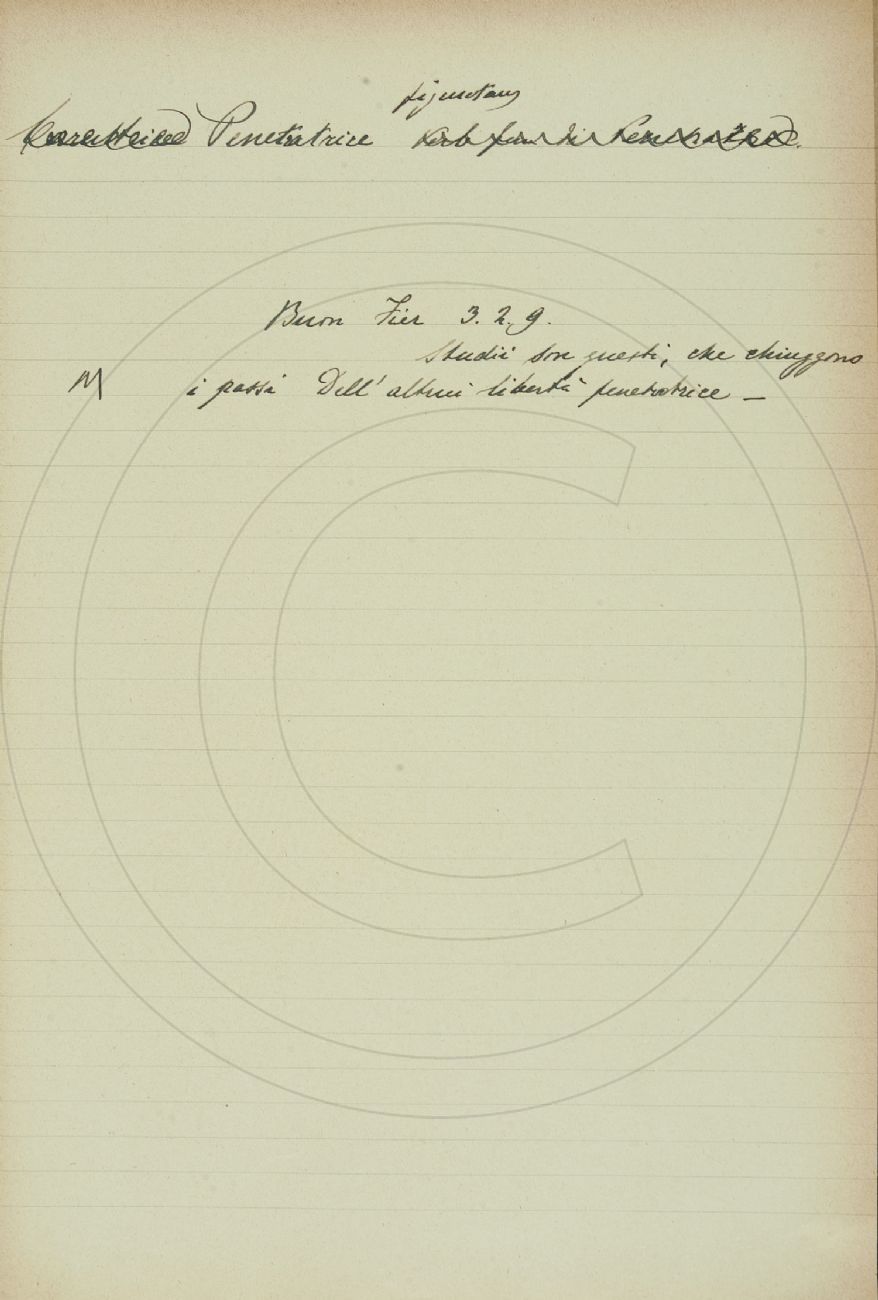 Penetratrice
Buon Fier 3. 2. 9.
Studii son questi, che chiuggono
M i passi Dell' altrui libertà penetratrice _